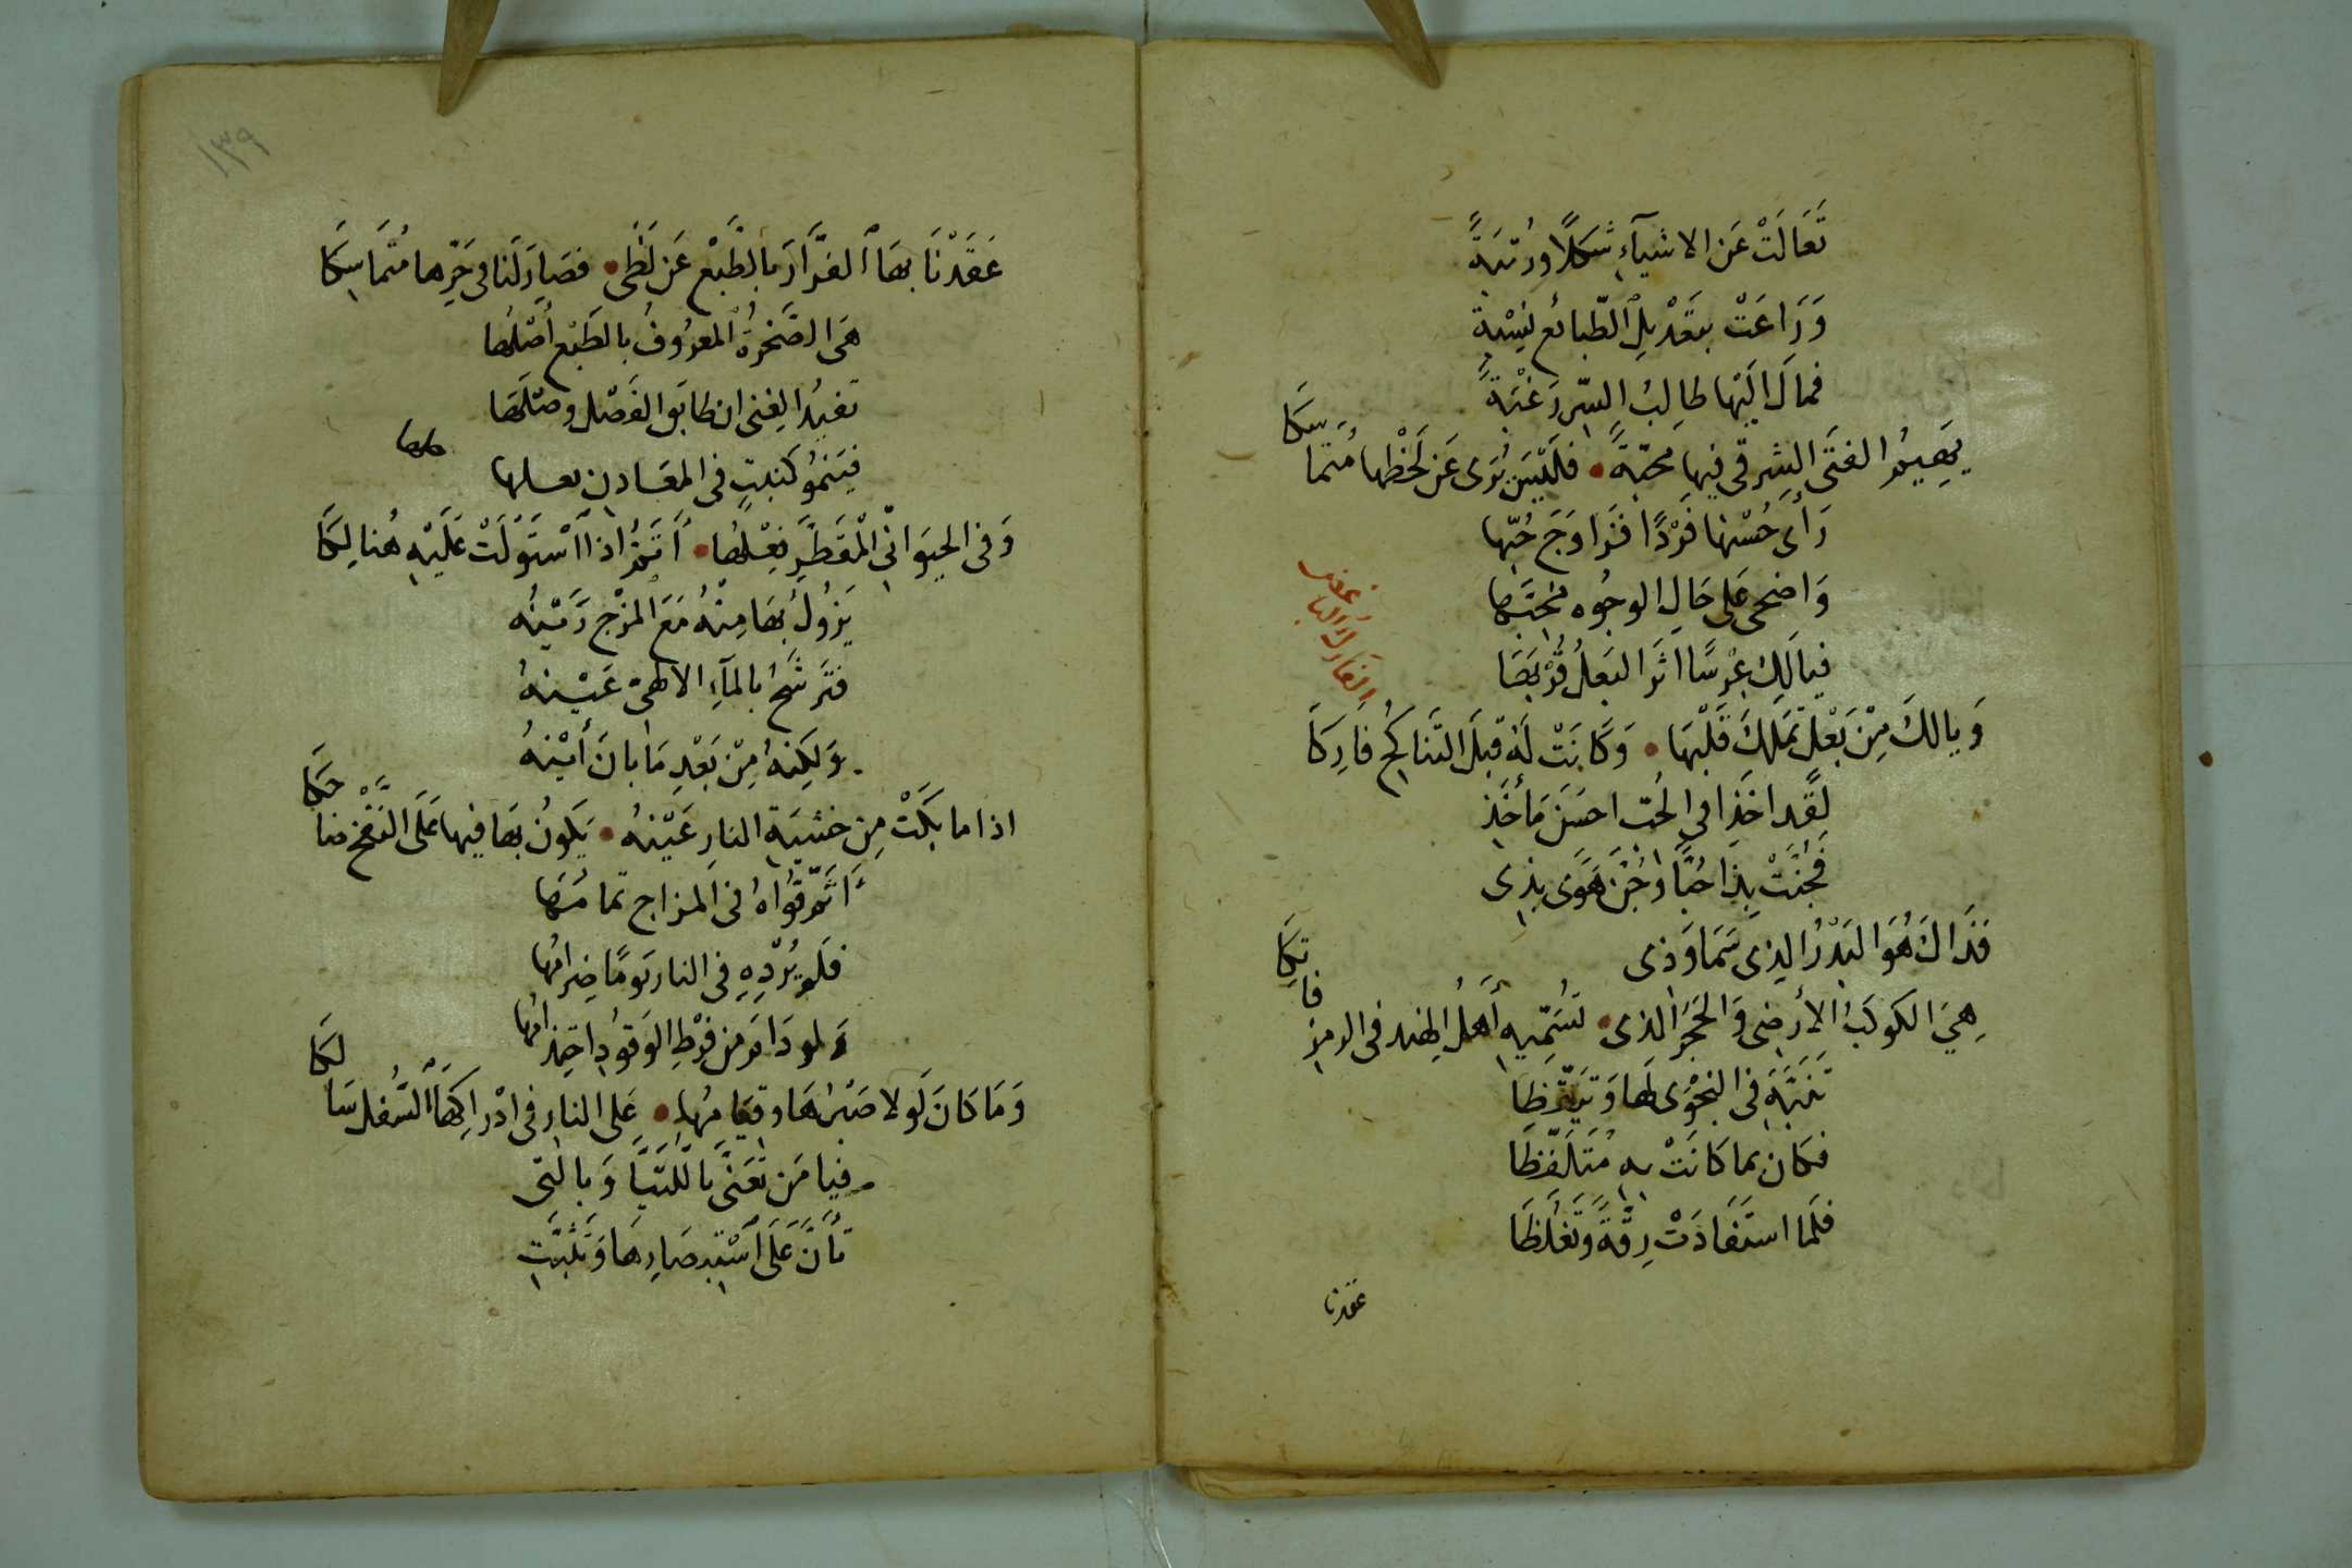 تَعَالَتْ عَنِ الاشيآءِ شكلًا ورُتبَةً
وَرَاعَتْ بتعْديلِ الطّبائع نِسْبةً
فمالَ اليْها طالِبُ السِّر رَغْبَةً
يهيمُ الفتَى الشرقى فيها محبّةً • فليْسَ يُرَى عَن لحْظها مُتماسِكا
رَأَى حُسْنها فَرْدًا فَزاوَجَ حُبّها
وَاضحى عَلى حَالِ الوجُوه محبّها
فيالَكِ عِرْسًا اثَر البَعلُ قُرْبَهَا
وَيالكَ مِنْ بَعْلٍ تملكَ قَلْبَهَا • وَكَانَتْ لَهُ قبْلَ التَناكُحِ فارِكَا
الفارك التارك
لقَد اخذا فى الحُبّ احسَنَ مَأْخَذِ
فَجُنَّتْ بِذا حُبًّا وَجُنَّ هَوًى بذِى
فَذَاكَ هُوَ البَدْرُ الذِى سَمَا وَذى
هِيَ الكوكبُ الأرضى وَالحَجَرُ الذى • تُسَمِّيهِ أَهلُ الهند فى الرمز فاتِكا
تنَبَّهَ فى النجْوَى لَها وَتيَقّظا
فكان بما كانَتْ بهِ مُتَلَفّظَا
فلَما استَفَادَتْ رِقَّةً وَتَغَلّظَا
عقدنا
١٣٩
عَقَدْنَا بهَا الفَرَّارَ بالطَّبْعِ عَن لَظَى • فصَارَ لَنا فى حَرِّها مُتَماسِكَا
هىَ الصَّخرَةُ المعرُوفُ بالطَبْعِ أصْلُها
تفيدُ الغِنى ان طابَق الفَصْل وصْلَها
فيَنمُو كنَبتٍ فى المعَادنِ بعلها
وَفى الحيَوانىِّ المُقَطَّرِ فِعْلُها • أَتَمُّ اذا اسْتَوْلَتْ عَلَيْهِ هُنالِكَا
يَزُولُ بهَا مِنْهُ مَعَ المَزْجِ رَيْنُه
فتَرشَحُ بالمآءِ الالهىّ عَيْنهُ
وَلكِنهُ مِنْ بَعْدِ مَا بانَ أَيْنهُ
اذا ما بكَتْ مِن خشيَةِ النارِ عَيْنهُ • يَكونُ بها فيها عَلَى النَفْخ ضاحكا
أَتَمَّ قُوَاهُ فى المزاج تمامُها
فلَم يُرْدِهِ فى النار يَومًا ضِرامُها
وَلو دَامَ مِن فَرْطِ الوَقودِ احتِدامُها
وَمَا كانَ لَولا صَبْرُها وقيامُها • عَلى النارِ فى ادْراكِهَا السُّفل سَالكا
فيا مَن تَعَنّى باللَّتيَّا وَبالتى
تَأَنَّ عَلَى اسْتبصارِهَا وَتَثَبَّتِ